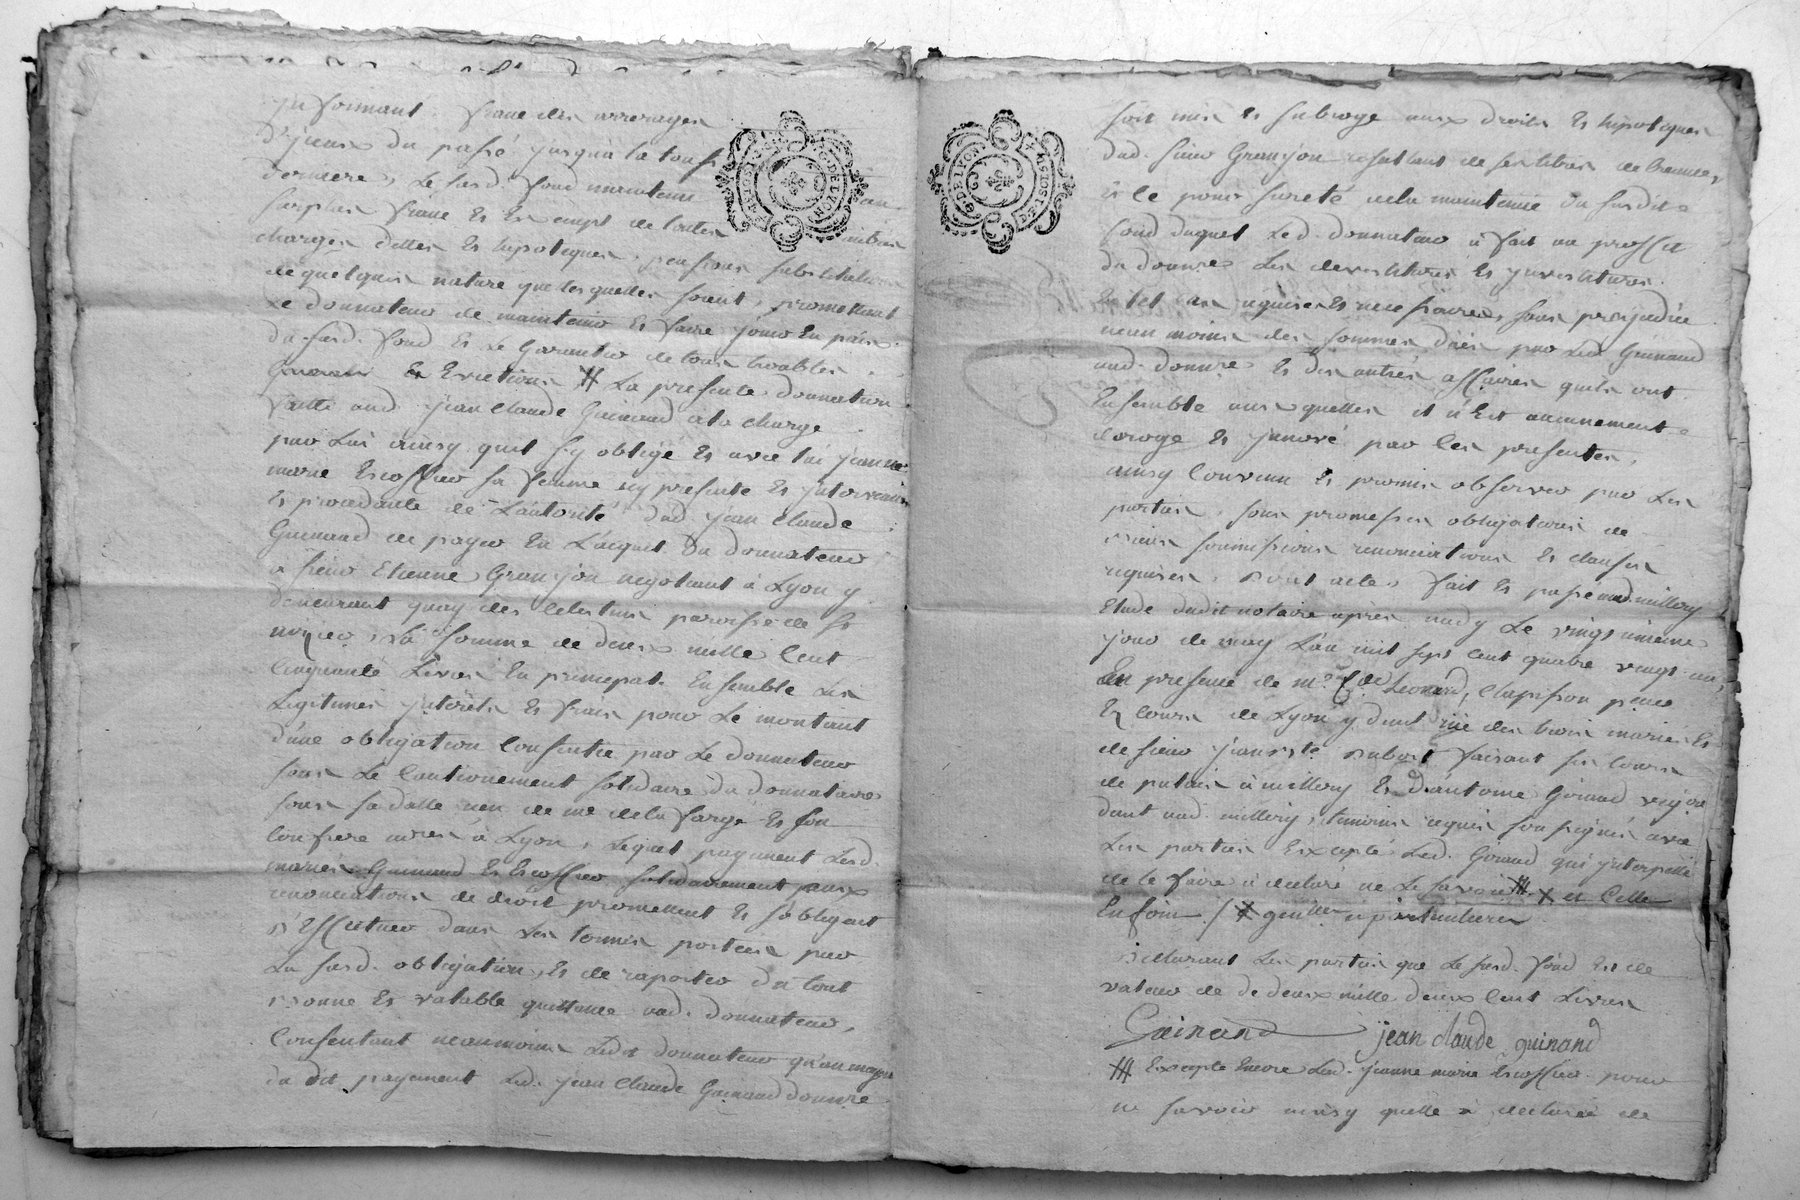 franc des arrerages
d'yceux du passé jusqua la touss
derniere, Le susd. fond maintenu
surplus franc et Exempt de toutes
charges dettes et hipoteques, pensions substitutions
de quelques nature que lesquelles soient, promettant
Le donnateur de maintenir et faire jouir En paix
du susd. fond et Le Garantir de tous troubles
et Evictions # La presente donnation
faitte aud. jean Claude Guinand a la charge
par Lui ainsy quil s'y oblige et avec lui jeanne
marie Escoffier sa femme icy presente et intervenante
et procedante de L'autorité dud. jean Claude
Guinand de payer En L'acquit du donnateur
a sieur Etienne Granjon negotiant à Lyon y
demeurant quay des Celestins paroisse de St
nizier, La somme de deux mille Cent
Cinquante Livres En principal Ensemble Les
Legitimes interets et frais pour Le montant
d'une obligation Consentie par Le donnateur
sous Le Cautionnement solidaire du donnataire
sous sa datte reçu de me delafarge et son
Confrere nores à Lyon, Lequel payement Lesd.
mariés Guinand et Escoffier solidairement
renonciations de droit promettent et s'obligent
d'Effectuer dans Les termes portées par
La susd. obligation, et de raporter du tout
Bonne et valable quittance aud. donnateur,
Consentant neanmoins Ledit donnateur qu'au moyen
du dit payement Led. jean Claude Guinand donnre
DE LYON
DE 1S OIS M
soit mis et subrogé aux droits et hipoteques
dud. sieur Granjon resultant de ses titres de Creances
et ce pour sureté de la maintenue du susdit
fond duquel Led. donnateur à fait au proffit
du donnre Les devestitures et ynvestitures
En tel cas requises et necessaires, sans prejudice
neanmoins des sommes dües par Led. Guinand
aud. donnre et des autres affaires quils ont
Ensemble aux quelles il n'Est aucunement
derogé et jnnové par Les presentes,
ainsy Convenu et promis observer par Les
parties, sous promesses obligations de
biens soumissions renonciations et clauses
requises, Dont acte, fait et passé aud. millery
Etude dudit notaire apres midy Le vingt unieme
jour de may L'an mil sept Cent quatre vingt un,
En presence de mr. Leonard Clapisson
Es Cours de Lyon y dmt rüe des trois maries et
de sieur jean bte Dubost faisant ses Cours
de palais à millery et D'antoine Giraud
dmt aud. millery, temoins requis soussignés avec
Les parties Excepté Led. Giraud qui jnterpellé
de le faire à declaré ne Le savoir # X et Celle
Enfoin / X
Declarant Les parties que Le susd. fond Est de
valeur de de deux mille deux Cent Livres
Guinand jean claude guinand
# Excepté Encore Lad. jeanne marie Escoffier pour
ne savoir ainsy quelle à declarée de